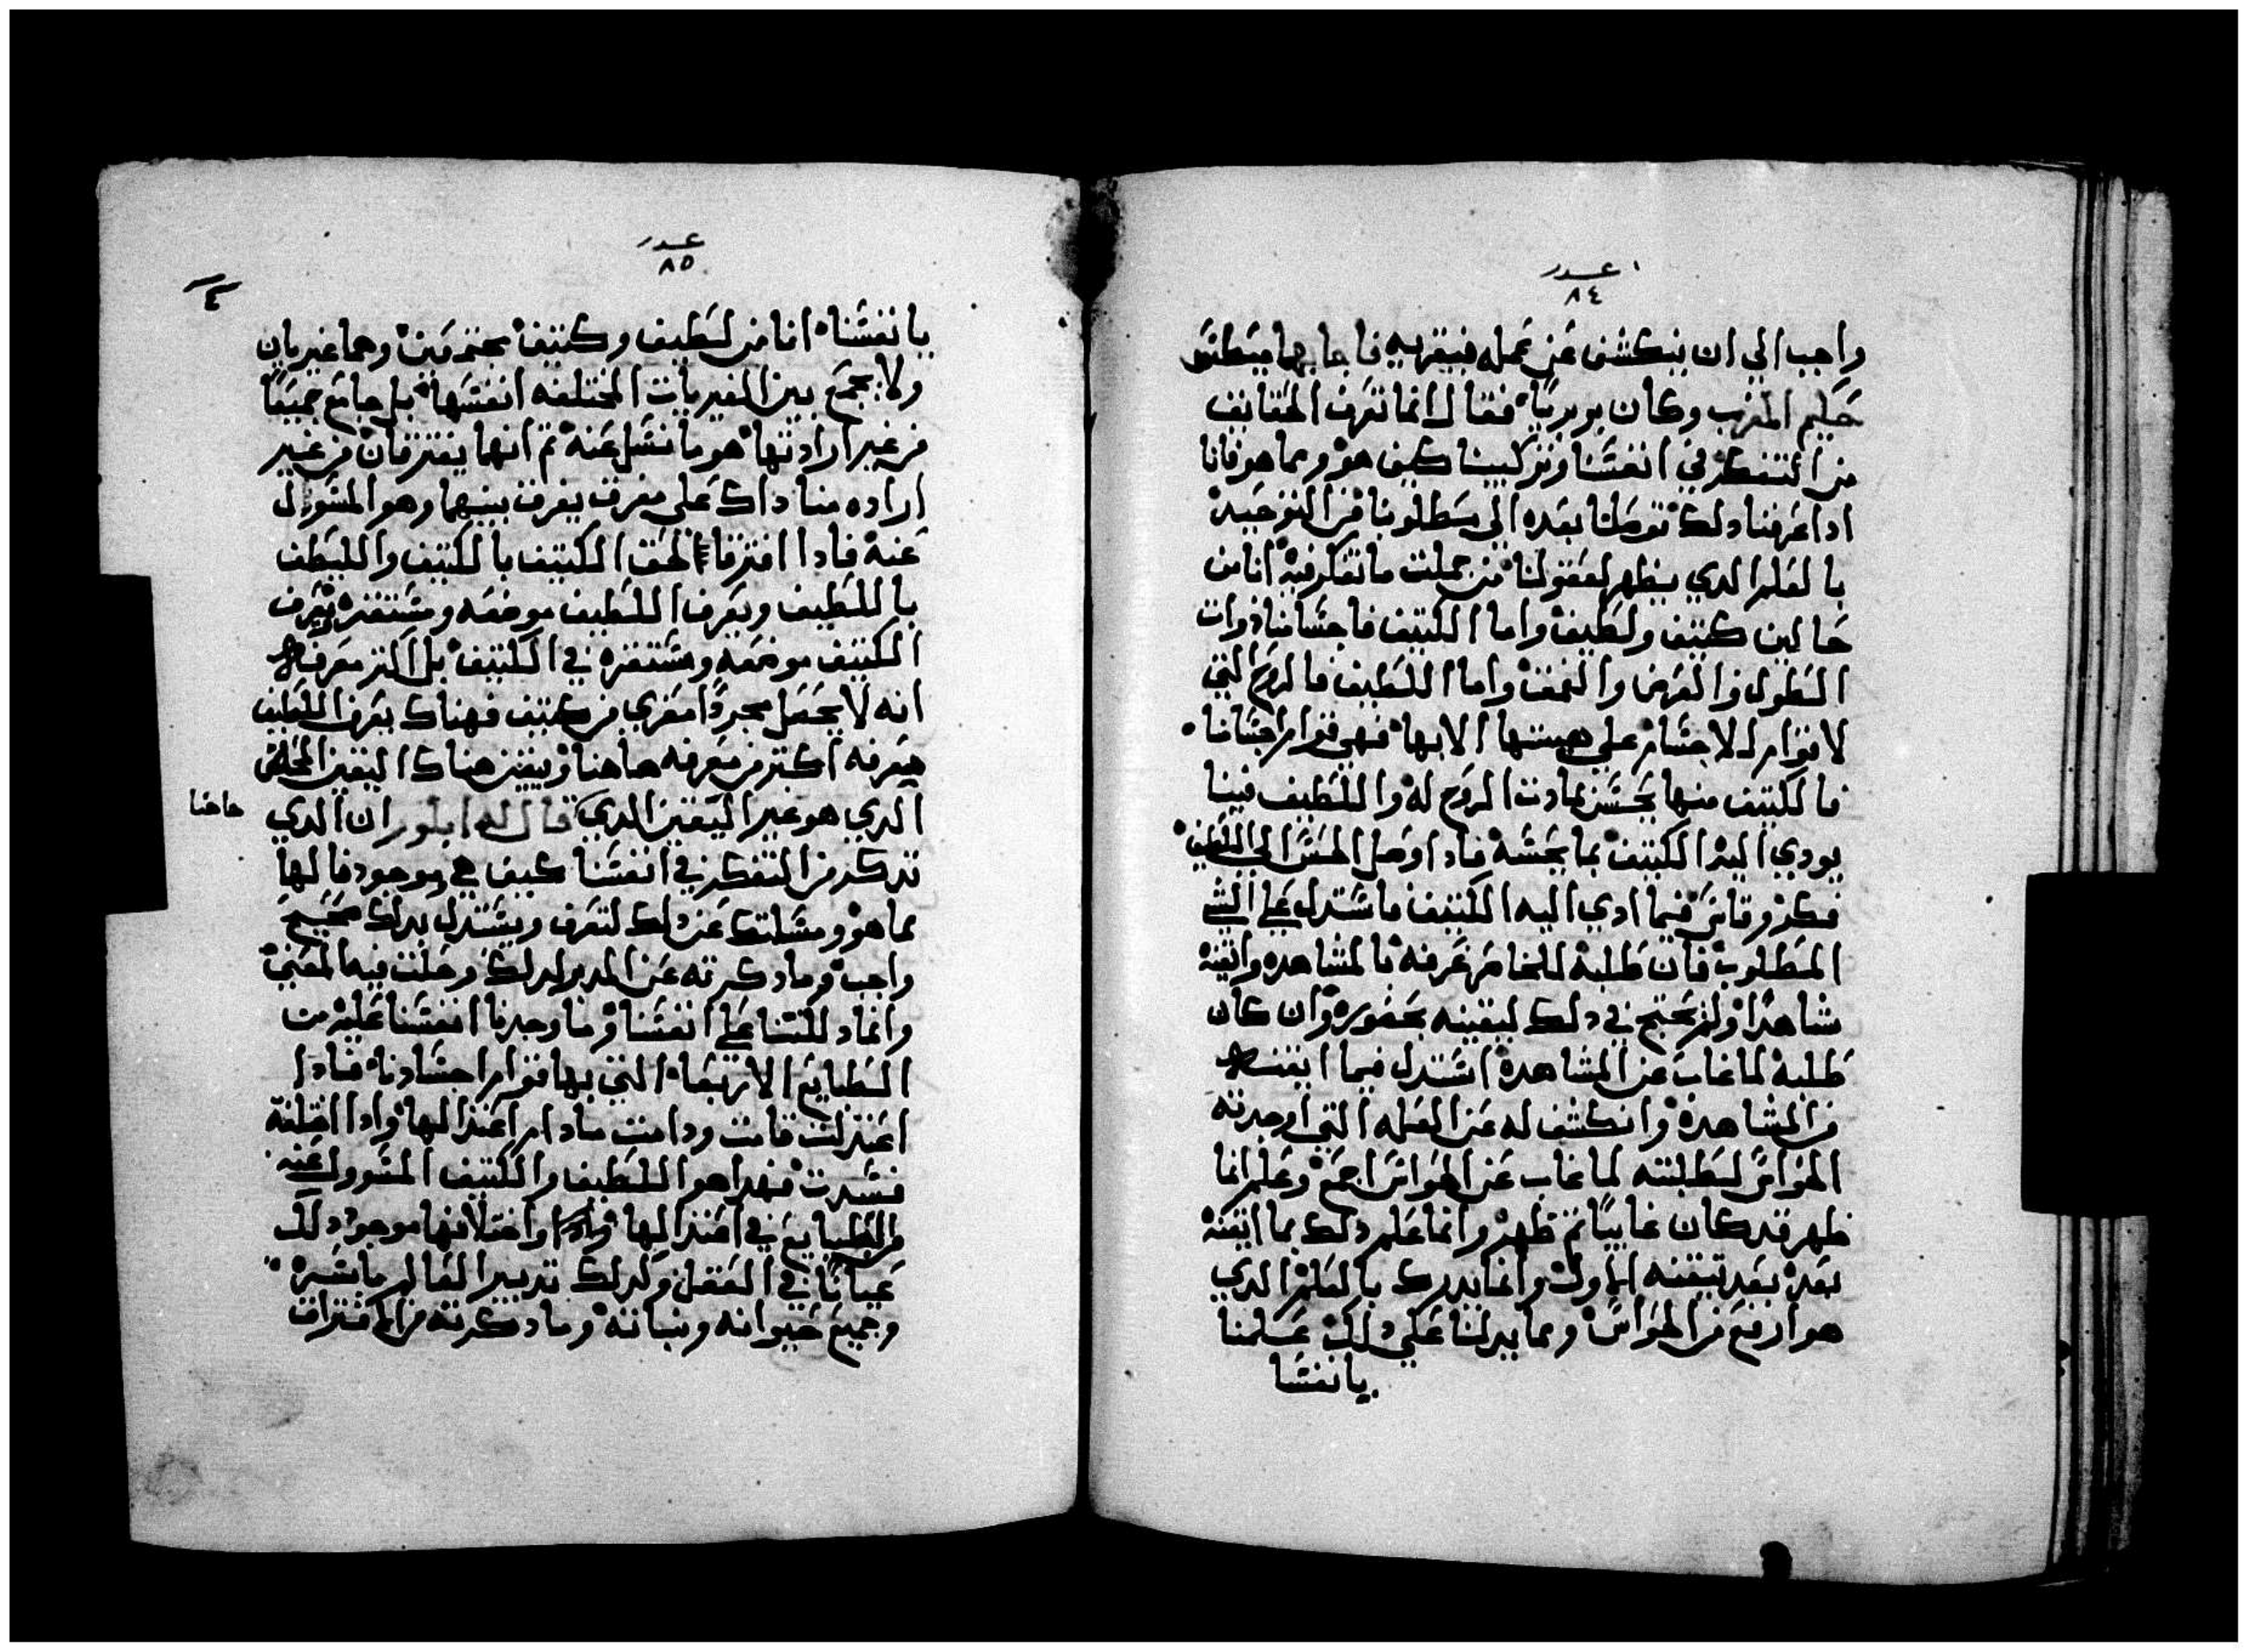 عدد
٨٤
واجب الي ان ينكشف عن عمله فيقربه فاجابهما ميطاتس
حكيم المغرب وكان بربريًا فقال انما نعرف الحقايق
من التفكر في انفسنا وتركيبنا كيف هو ومما هو فانا
ادا عرفنا دلك توصلنا بعده الي مطلوبنا من التوحيد
بالعلم الدي يظهر لعقولنا من جملت ما نفكر فيه اننا من
حالين كتيف ولطيف واما الكتيف فاجسامنا دوات
الطول والعرض والعمق واما اللطيف فالروح التي
لا قوام للاجسام علي هيتها الا بها فهي قوام اجسامنا
فالكتيف منها يحس بمادت الروح له واللطيف فينا
يودي اليه الكتيف بما يحسه فادا وصل الحس الي اللطيف
فكر وقاس فيما ادي اليه الكتيف فاستدل علي الشي
المطلوب فان طلبه للحاضر عرفه بالمشاهده وايقنه
شاهدًا ولم يحتج في دلك ليقينه بحضوره وان كان
طلبه لما غاب عن المشاهده استدل فيما ايقنه
من المشاهده وانكشف له عن العله التي اوجدته
الحواس لطلبته لما غاب عن الحواس اجمع وعلم انما
ظهر قد كان غايبًا تم ظهر وانما علم دلك بما ايقنه
بعد بعد تيقنه الاول وانما يدرك بالعلم الدي
هو ارفع من الحواس ومما يدلنا علي دلك علمنا
بانفسنا
عدد
٨٥
٤
بانفسنا اننا من لطيف وكتيف مجتمعين وهما غيريان
ولا يجمع بين الغيريات المختلفه انفسها بل جامع جميعًا
من غير ارادتها هو ما نسل عنه تم انهما يفترقان من غير
اراده منا داك علي مفرق يفرق بينهما وهو المسوول
عنه فادا افترقا لحق الكتيف بالكتيف واللطيف
باللطيف ويعرف اللطيف موضعه ومستقره ويعرف
الكتيف موضعه ومستقره في الكتيف بل اكتر معرفه
انه لا يحصل مجردًا معري من كتيف فهناك يعرف اللطيف
معرفه اكتر من معرفه هاهنا ويتيقن هناك اليقين المحض
الدي هو غير اليقين الدي قال له ابلور ان الدي
هاهنا
تدكر من التفكر في انفسنا كيف هي موجود فالها
مما هو ومسالتك عن دلك لتعرف ويستدل بدلك صحيح
واجب وما دكرته عن المدبر لدلك وصلت فيه المعني
وانما دللتنا علي انفسنا وما وجدنا انفسنا عليه من
الطبايع الاربعه التي بها قوام اجسادنا فادا
اعتدلت قامت ودامت مادام اعتدالها وادا اختلفت
فسدت فهدا هو اللطيف والكتيف المسوول عنه
والطبايع في اعتدالها واختلافها موجود دلك
عيانًا في العقل وكدلك تدبير العالم باسره
وجميع حيوانه ونباته وما دكرته من الافتراق